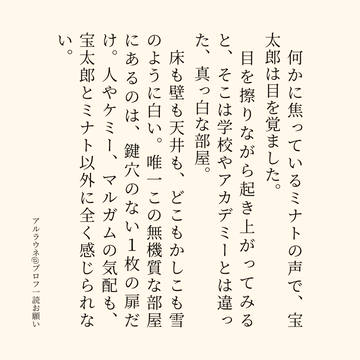 何かに焦っているミナトの声で、宝
太郎は目を覚ました。
目を擦りながら起き上がってみる
と、そこは学校やアカデミーとは違っ
た、真っ白な部屋。
床も壁も天井も、どこもかしこも雪
のように白い。唯一この無機質な部屋
にあるのは、鍵穴のない1枚の扉だ
け。人やケミー、マルガムの気配も、
宝太郎とミナト以外に全く感じられな
い。
アルラウネ@プロフ一読お願い